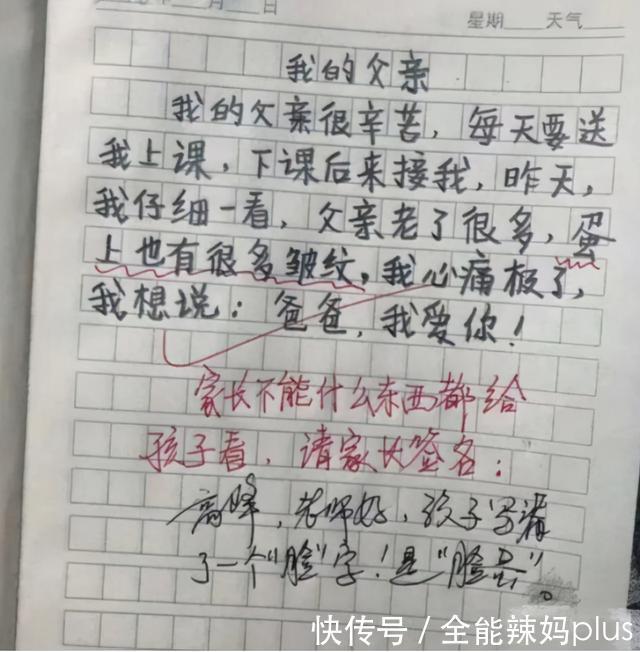 月 日
星期 天气
我的父亲
我的父亲很辛苦，每天要送
我上课，下课后来接我，昨天，
我仔细一看，父亲老了很多，蛋
上也有很多皱纹，我心痛极了，
我想说：爸爸，我爱你！
家长不能什么东西都给
孩子看，请家长签名：
高峰，老师好，孩子写漏
了一个"脸"字！是"脸蛋"。
快传号 / 全能辣妈plus